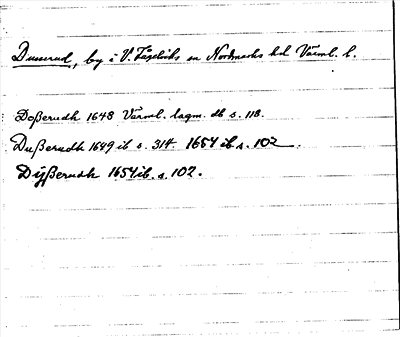 Dusserud, by i V. Fågelviks sn Nordmarks hd Värml. l.
Doßerudh 1648 Värml. lagm. db s. 118.
Dußerudh 1649 ib s. 314 1654 ib s. 102.
Dÿßerudh 1654 ib. s. 102.